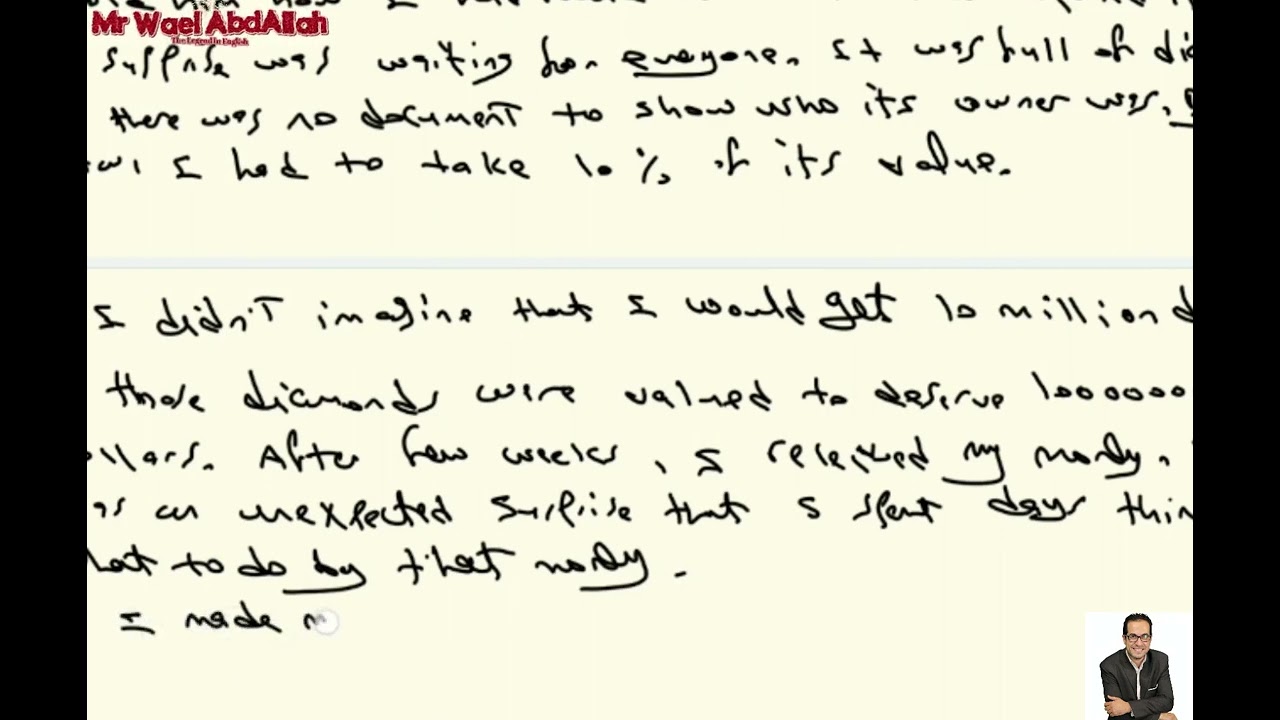 Mr Wael AbdAllah
The Legend In English
surprise was waiting for everyone. It was full of di
there was no document to show who its owner was.
I had to take 10 % of its value.
I didn't imagine that I would get 10 million d
those diamonds were valued to deserve 1000000
llars. After few weeks, I received my mony.
as an unexpected surprise that I spent days thin
hat to do by that mony.
I made m